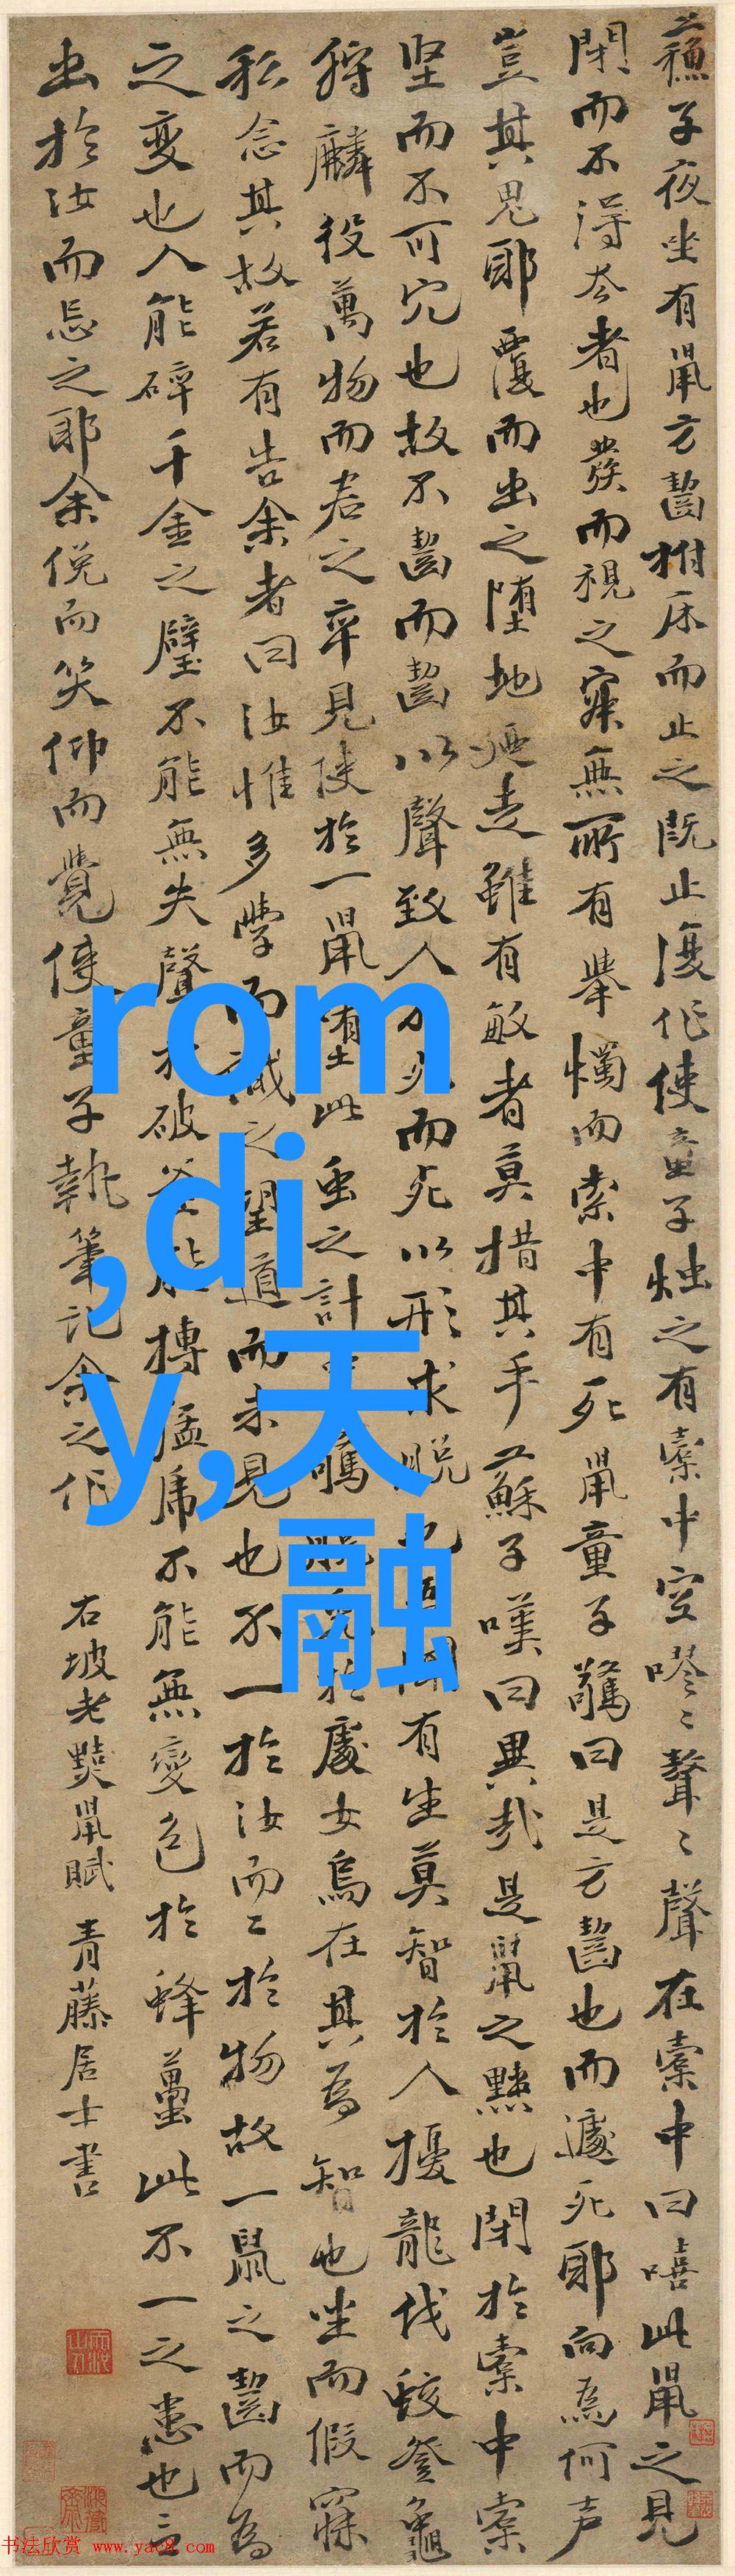 蘇子夜坐有鼠方齧拊床而止之既止復作使童子烛之有橐中空嘐〻聱〻聲在橐中曰嘻此鼠之見
閉而不得去者也發而視之寂無所有舉燭而索中有死鼠童子驚曰是方齧也而遽死耶向為何声
豈其鬼耶覆而出之堕地廼走雖有敏者莫措其手蘇子嘆曰異哉是鼠之黠也閉於橐中橐
坚而不可穴也故不齧而齧以聲致人不死而死以形求脫也聞有生莫智於人擾龍伐蛟登龜
狩麟役萬物而君之卒見使於一鼠堕此虫之計驚脫兔於處女烏在其為智也坐而假寐
私念其故若有告余者曰汝惟多學而識之望道而未見也不一於汝而二於物故一鼠之齧而為
之變也人能碎千金之璧不能無失聲於破釜能搏猛虎不能無變色於蜂蠆此不一之患也言
出於汝而忘之耶余俛而笑仰而覺使童子執筆記余之作 右坡老黠鼠賦 青藤居士書
rom
,di
y,天
融
书法欣赏 www.yac8.com